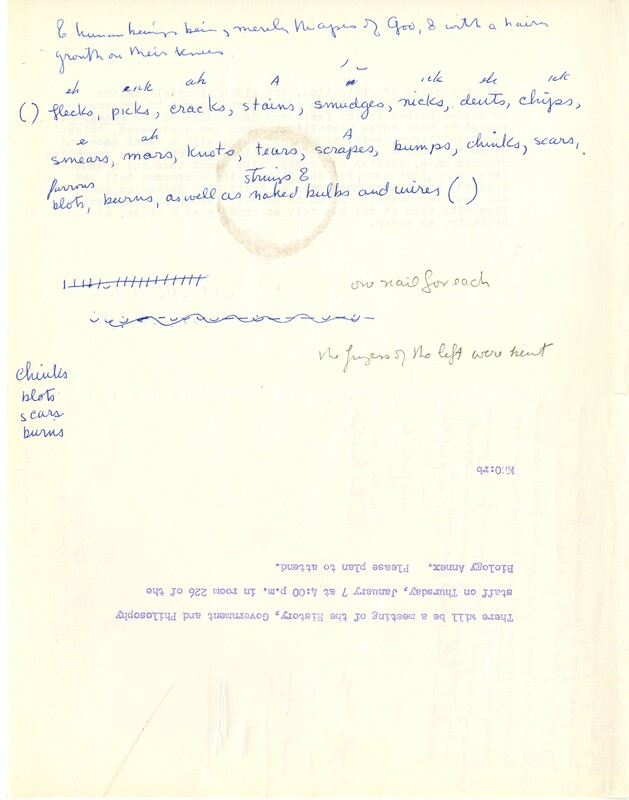 & human beings being merely the apes of God, & with a hairy
growth on their knees
eh eick ah A ick eh ick
( ) flecks, picks, cracks, stains, smudges, nicks, dents, chips,
e ah A
smears, mars, knots, tears, scrapes, bumps, chinks, scars,
furrows strings &
blots, burns, as well as naked bulbs and wires ( )
one nail for each
the fingers of the left were bent
chinks
blots
scars
burns
:rb
Biology Annex. Please plan to attend.
staff on Thursday, January 7 at 4:00 p.m. in room 226 of the
There will be a meeting of the History, Government and Philosophy